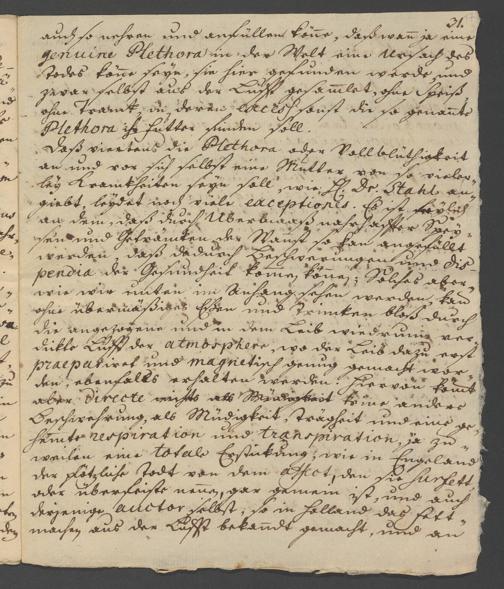 21.
auch so nehren und anfüllen könne, daß wann ja eine
genuine Plethora in der Welt eine Ursach des
Todes könne seyn, sie hier gefunden werde und
zwar selbst aus der Lufft gesammlet, ohne Speiß
ohne Tranck, in deren excess sonst die so genannte
Plethora ihr Futter finden soll.
Daß viertens die Plethora oder Vollblüthigkeit
an und vor sich selbst eine Mutter von so vieler„
ley Kranckheiten seyn soll, wie H. Dr. Stahl an„
giebt, leydet noch viele exceptiones. Es ist freylich
an dem, daß durch Ubermaaß nahrhaffter Spei„
sen und Geträncken der Wanst so kan angefüllt
werden, daß dadurch Beschwerungen und dis„
pendia der Gesundheit können; Solches aber,
wie wir unten im Anhang sehen werden, kan
ohne übermäßiges Essen und Trincken bloß durch
die angezogene und in dem Leib wiedrum ver„
dickte Lufft der atmosphere, wo der Leib dazu erst
praepariret und magnetisch genug gemacht wor„
den, ebenfalls erhalten werden. Hiervon könnt
aber directe nichts als keine andere
Beschwehrung, als Müdigkeit, Tragheit und eine ge„
hemte respiration und transpiration, ja zu„
weilen eine totale Erstickung; wie in Engeland
der plötzliche Todt von dem affect, den sie surfett
oder überfleiste nennen, gar gemein ist, und auch
derjenige auctor selbst, so in Holland das Fett„
machen aus der Lufft bekannt gemacht, und an